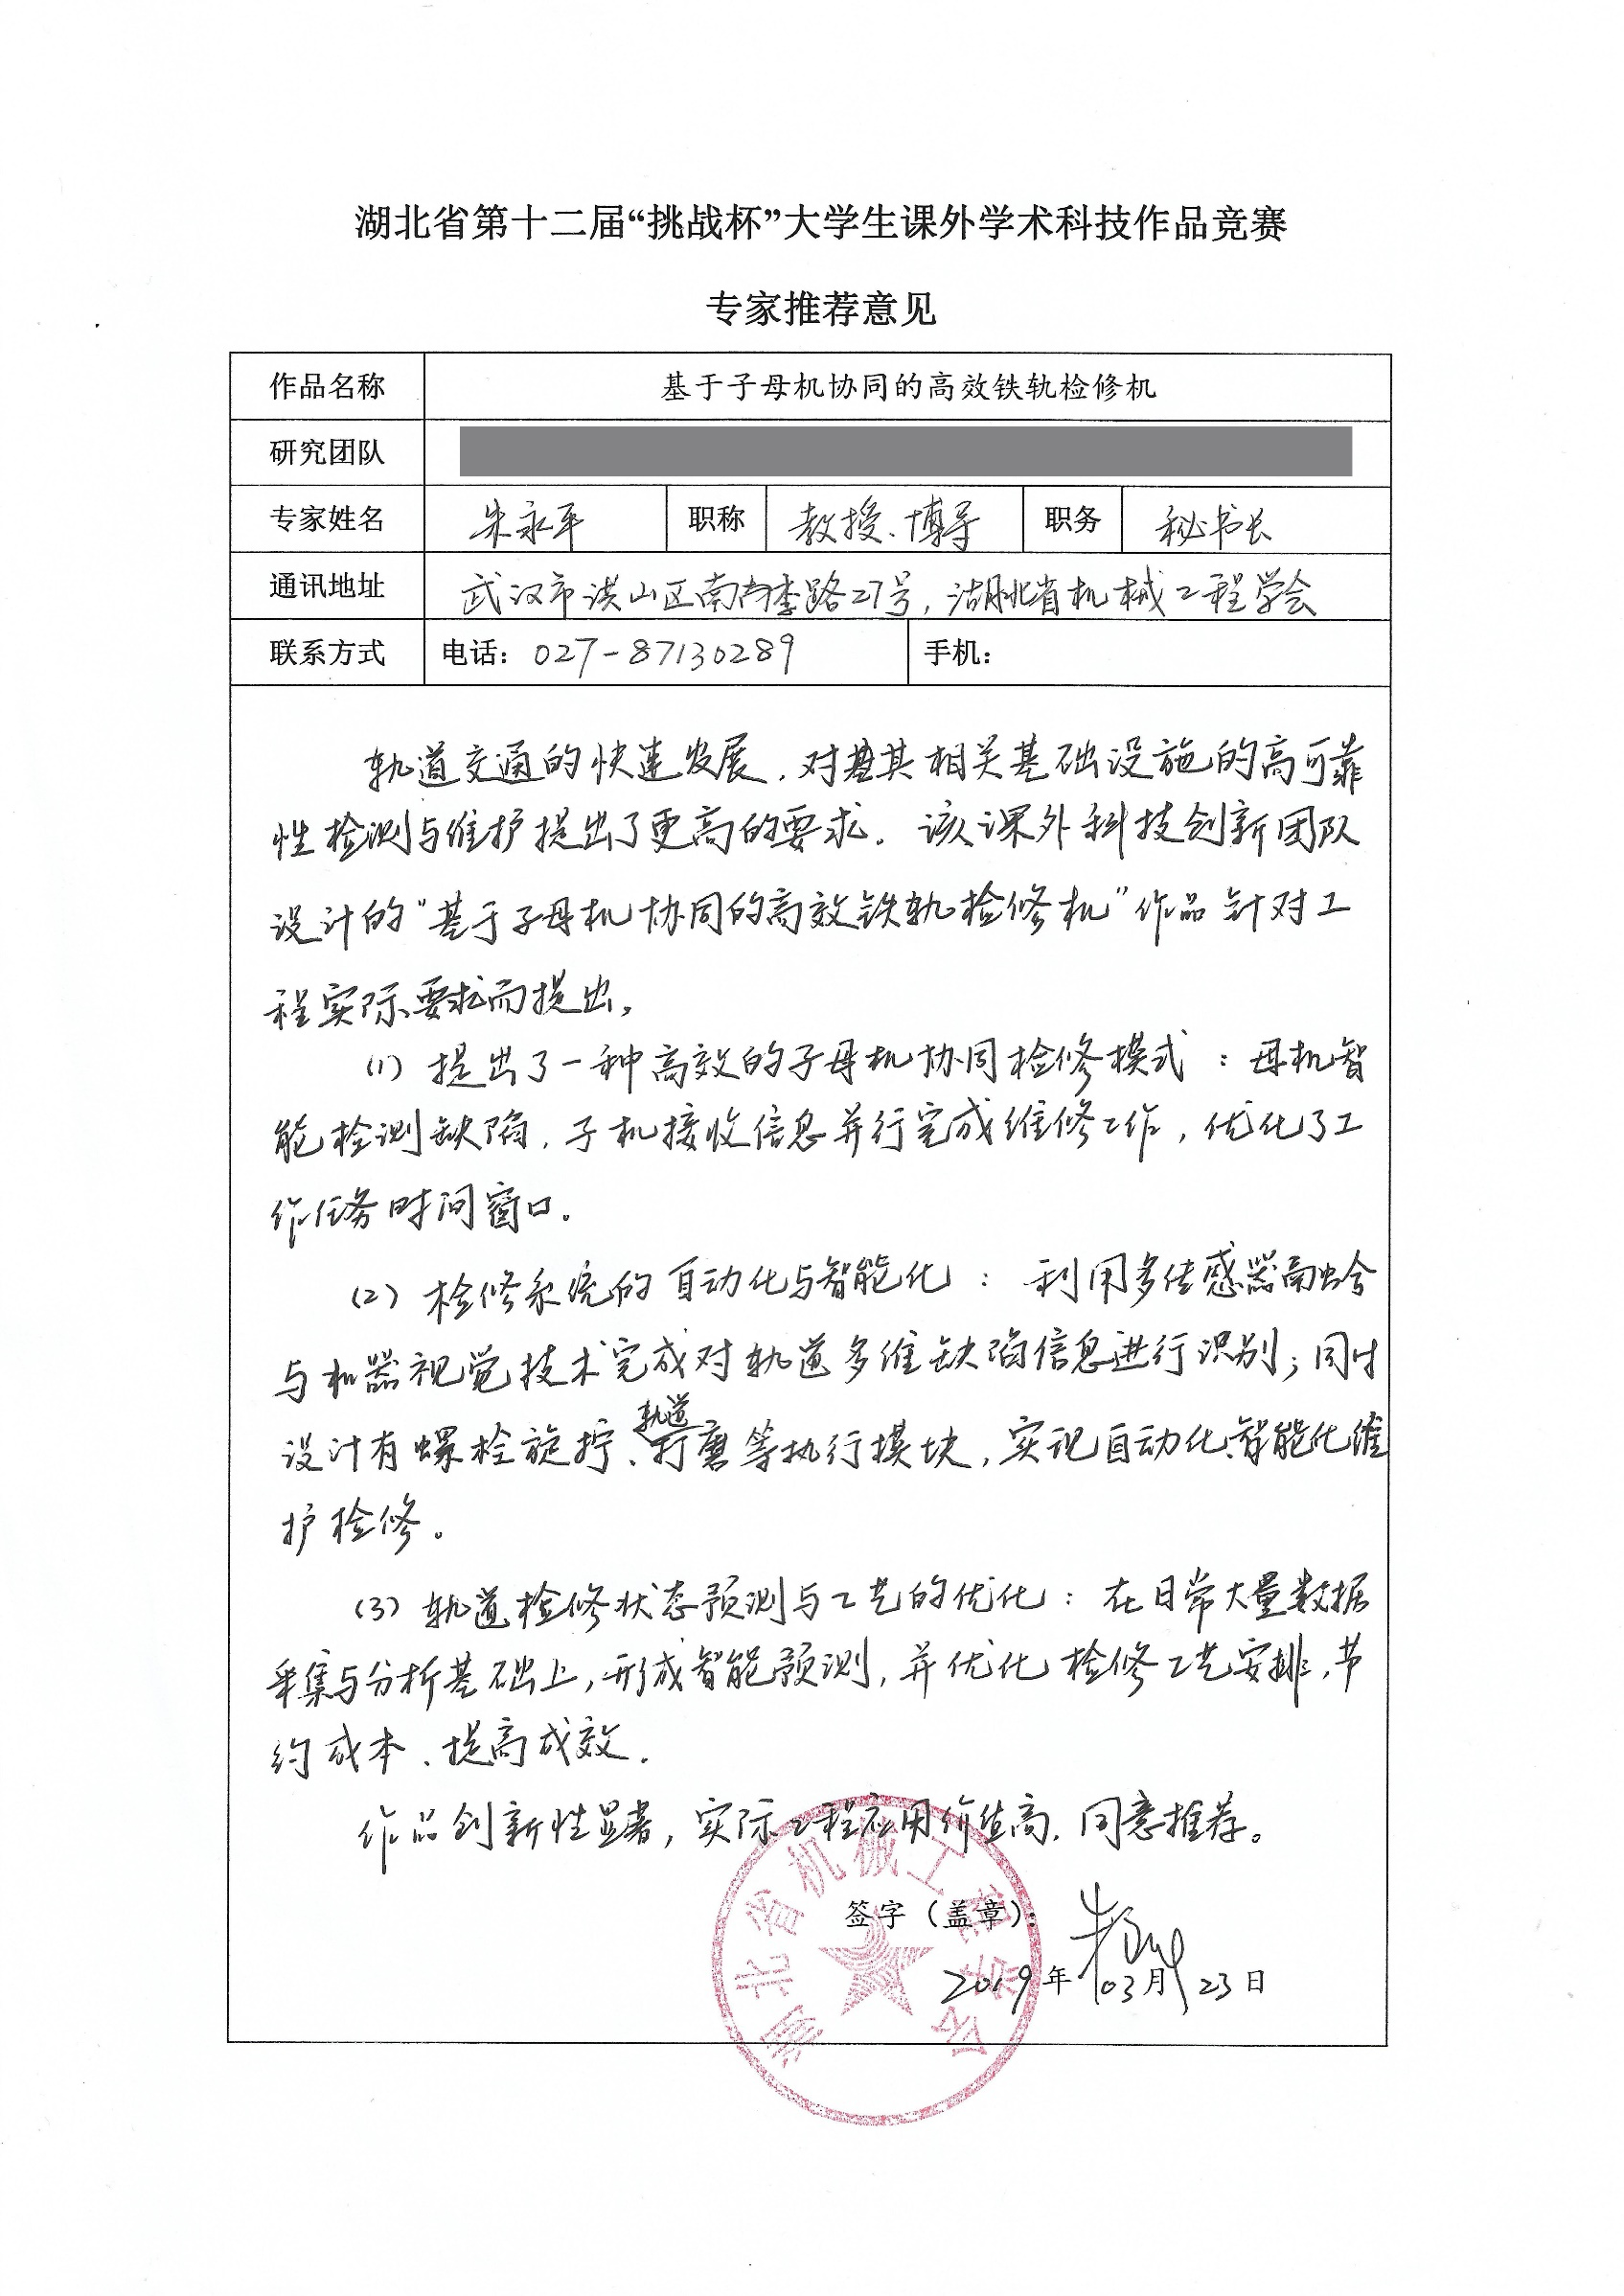 湖北省第十二届“挑战杯”大学生课外学术科技作品竞赛
专家推荐意见
作品名称 基于子母机协同的高效铁轨检修机
研究团队
专家姓名 朱永平 职称 教授、博导 职务 秘书长
通讯地址 武汉市洪山区南李路27号，湖北省机械工程学会
联系方式 电话：027-87130289 手机：
轨道交通的快速发展，对其相关基础设施的高可靠
性检测与维护提出了更高的要求。该课外科技创新团队
设计的“基于子母机协同的高效铁轨检修机”作品针对工
程实际要求而提出。
(1) 提出了一种高效的子母机协同检修模式：母机智
能检测缺陷，子机接收信息并行完成维修工作，优化了工
作任务时间窗口。
(2) 检修系统的自动化与智能化：利用多传感器融合
与机器视觉技术完成对轨道多维缺陷信息进行识别；同时
设计有螺栓旋拧、轨道打磨等执行模块，实现自动化、智能化维
护检修。
(3) 轨道检修状态预测与工艺的优化：在日常大量数据
采集与分析基础上，形成智能预测，并优化检修工艺安排，节
约成本、提高成效。
作品创新性显著，实际工程应用价值高，同意推荐。
签字（盖章）：
2019年03月23日
湖北省机械工程学会